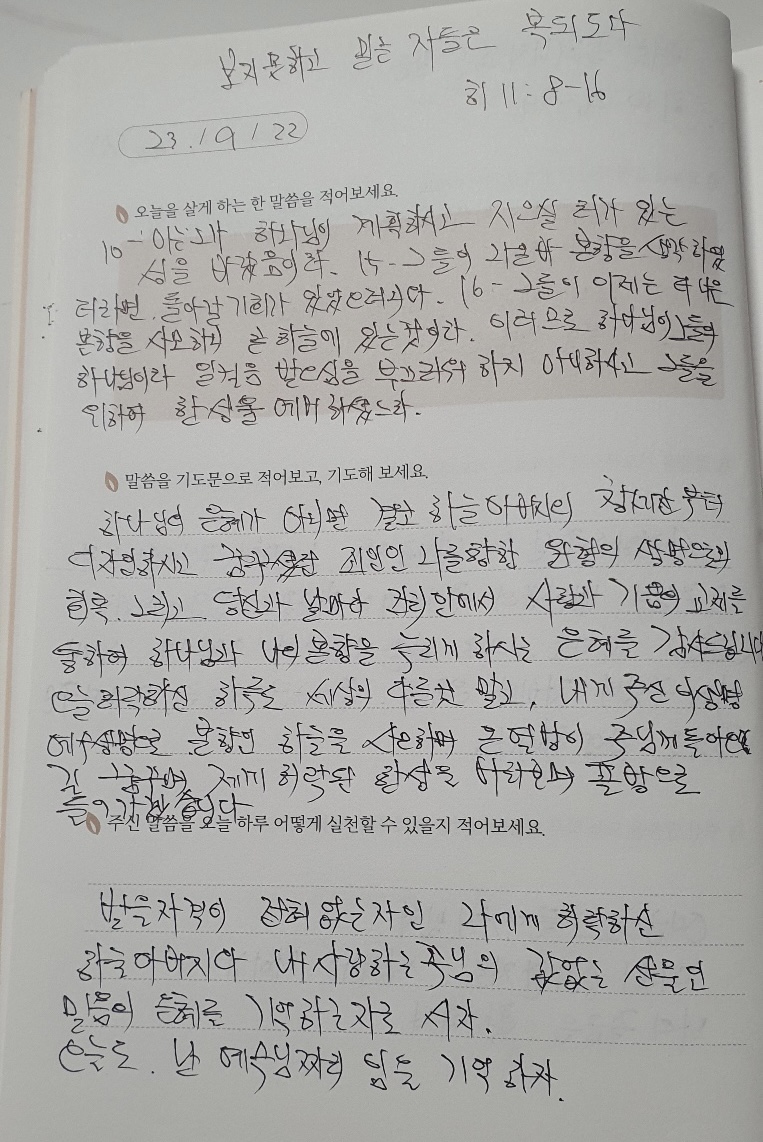 보지 못하고 믿는 자들은 복되도다
히 11:8-16
23.19.122
오늘을 살게 하는 한 말씀을 적어보세요.
10- 이는 그가 하나님이 계획하시고 지으실 터가 있는
성을 바랐음이라. 15- 그들이 나온바 본향을 생각하였
더라면 돌아갈 기회가 있었으려니와. 16- 그들이 이제는 더 나은
본향을 사모하니 곧 하늘에 있는것이라. 이러므로 하나님이 그들의
하나님이라 일컬음 받으심을 부끄러워 하지 아니하시고 그들을
위하여 한 성을 예비하셨느니라.
말씀을 기도문으로 적어보고, 기도해 보세요.
하나님의 은혜가 아니면 결코 하늘 아버지의 창세전부터
죄인인 나를향한
그리고 당신과 날마다 진리안에서 사랑과 기쁨의 교제를
통하여 하나님과 나의 본향을 누리게 하시는 은혜를 감사드립니다
오늘 허락하신 하루도 세상의 다른것 말고, 내게 주신
본향인 하늘을 사모하며 주님께
꿈꾸며 제게 허락된 한성을 바라보며 본향으로
들어가겠습니다
주신 말씀을 오늘 하루 어떻게 실천할 수 있을지 적어보세요.
받을자격이 전혀 없는자인 나에게 허락하신
하늘아버지와 내 사랑하는 주님의 값없는 선물인
말씀의 은혜를 기억하는자로 서자.
오늘도. 난 예수님짜리 임을 기억하자.